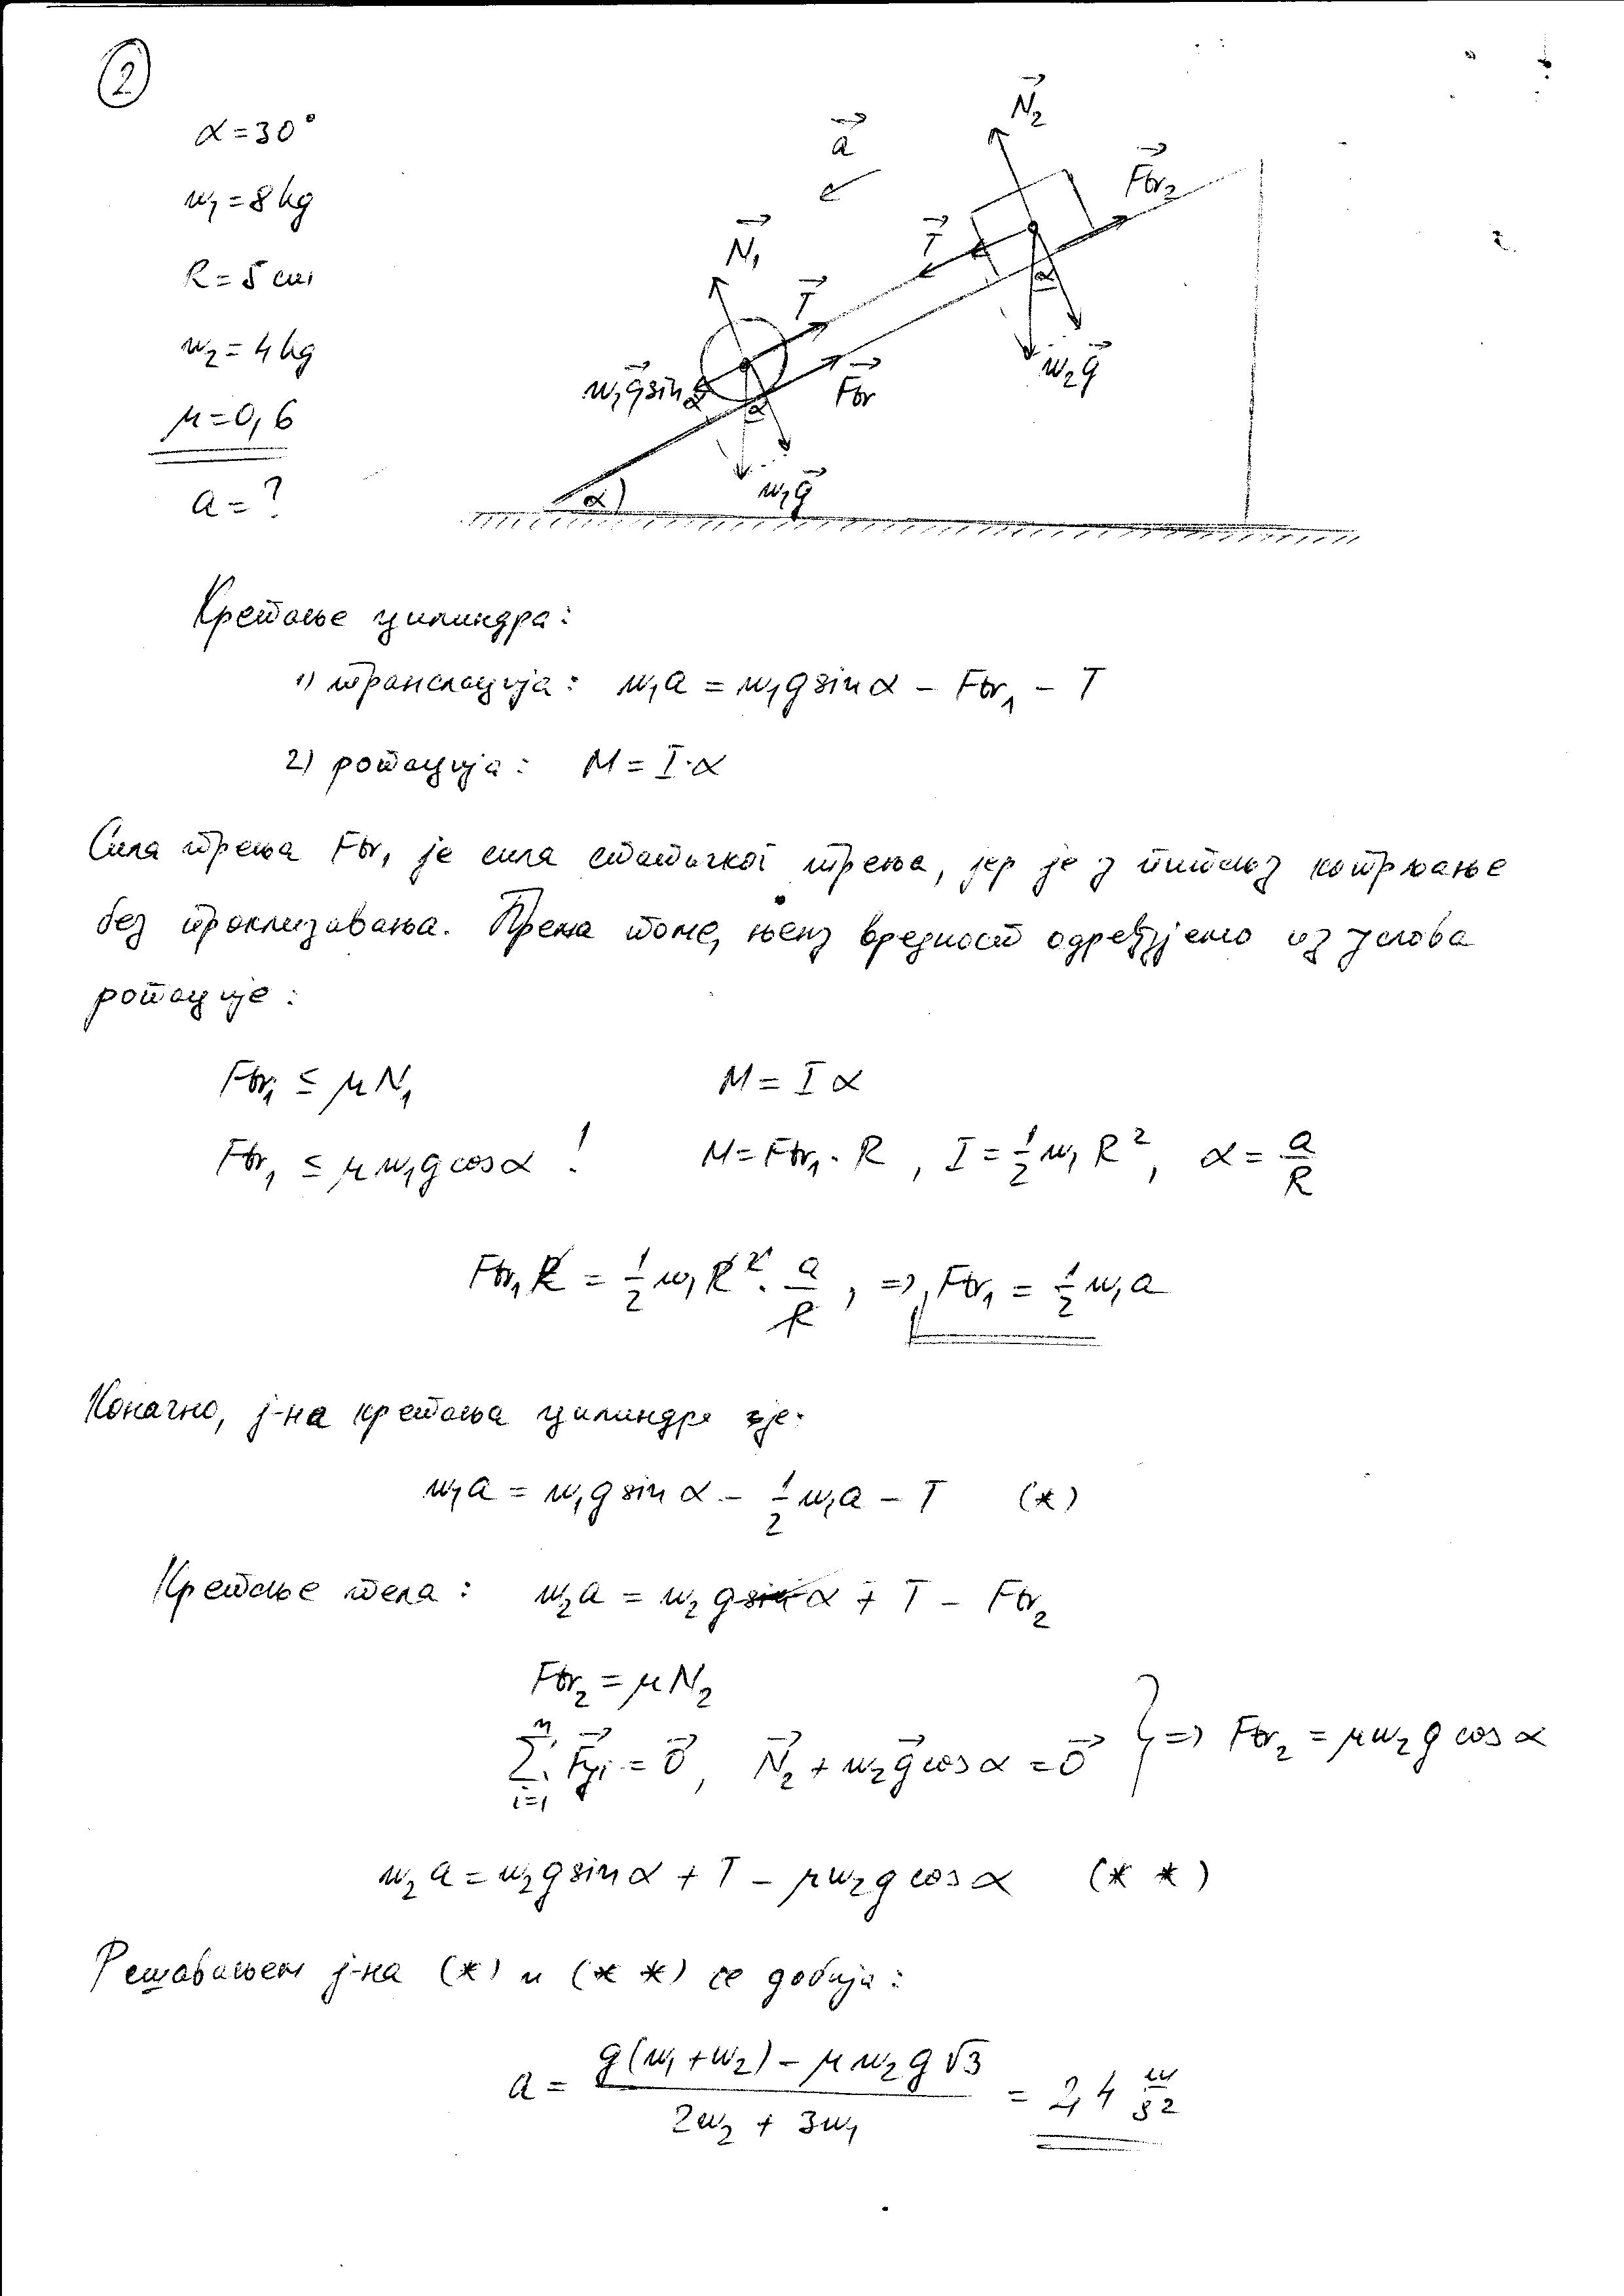 2
α = 30°
m₁ = 8 kg
R = 5 cm
m₂ = 4 kg
μ = 0,6
a = ?
a⃗
N⃗₂
F⃗tr₂
T⃗
N⃗₁
T⃗
α
m₂g⃗
m₁g⃗ sin α
α
F⃗tr
m₁g⃗
α
Кретање цилиндра:
1) транслација: m₁a = m₁g sin α − Ftr₁ − T
2) ротација: M = I·α
Сила трења Ftr₁ је сила статичког трења, јер је у питању котрљање
без проклизавања. Према томе, њену вредност одређујемо из услова
ротације:
Ftr₁ ≤ μN₁ M = I α
Ftr₁ ≤ μm₁g cos α ! M = Ftr₁·R , I = 1/2 m₁R², α = a/R
Ftr₁R = 1/2 m₁R² · a/R , => Ftr₁ = 1/2 m₁a
Коначно, ј-на кретања цилиндра је:
m₁a = m₁g sin α − 1/2 m₁a − T (*)
Кретање тела: m₂a = m₂g sin α + T − Ftr₂
Ftr₂ = μN₂
∑ᵢ₌₁ⁿ F⃗yi = 0⃗, N⃗₂ + m₂g⃗ cos α = 0⃗ } => Ftr₂ = μm₂g cos α
m₂a = m₂g sin α + T − μm₂g cos α (* *)
Решавањем ј-на (*) и (* *) се добија:
a = (g(m₁+m₂) − μm₂g√3)/(2m₂ + 3m₁) = 2,4 m/s²